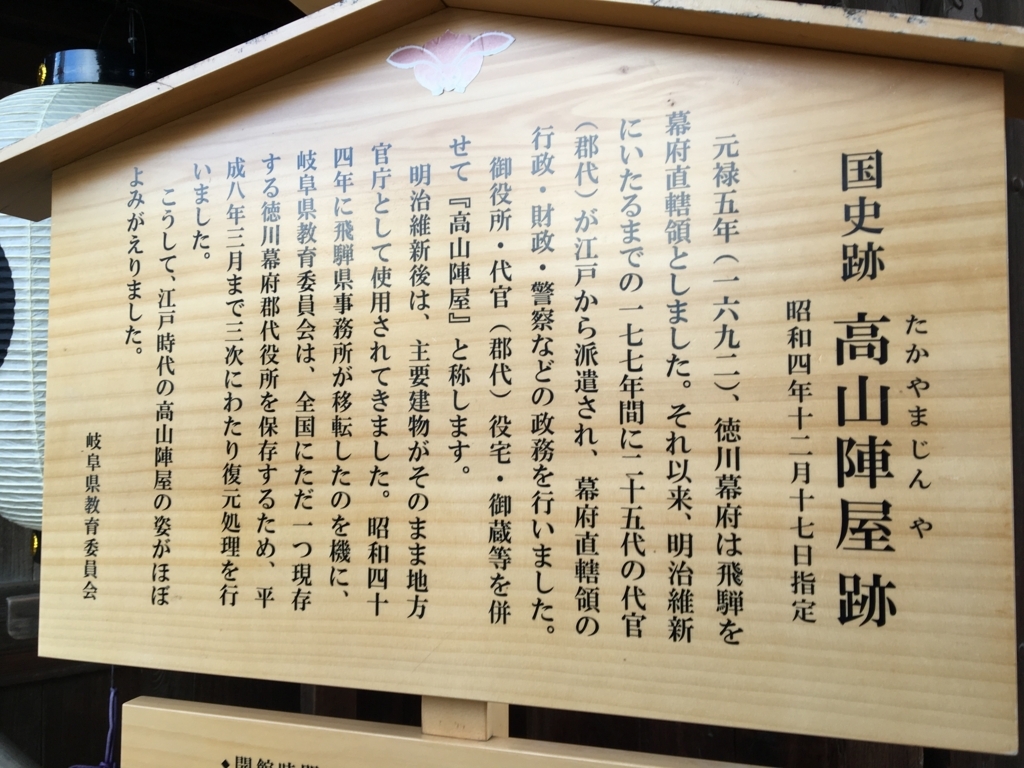 国史跡 高山陣屋跡
たかやまじんや
昭和四年十二月十七日指定
元禄五年（一六九二）、徳川幕府は飛騨を
幕府直轄領としました。それ以来、明治維新
にいたるまでの一七七年間に二十五代の代官
（郡代）が江戸から派遣され、幕府直轄領の
行政・財政・警察などの政務を行いました。
御役所・代官（郡代）役宅・御蔵等を併
せて『高山陣屋』と称します。
明治維新後は、主要建物がそのまま地方
官庁として使用されてきました。昭和四十
四年に飛騨県事務所が移転したのを機に、
岐阜県教育委員会は、全国にただ一つ現存
する徳川幕府郡代役所を保存するため、平
成八年三月まで三次にわたり復元処理を行
いました。
こうして、江戸時代の高山陣屋の姿がほぼ
よみがえりました。
岐阜県教育委員会
◆開館時間